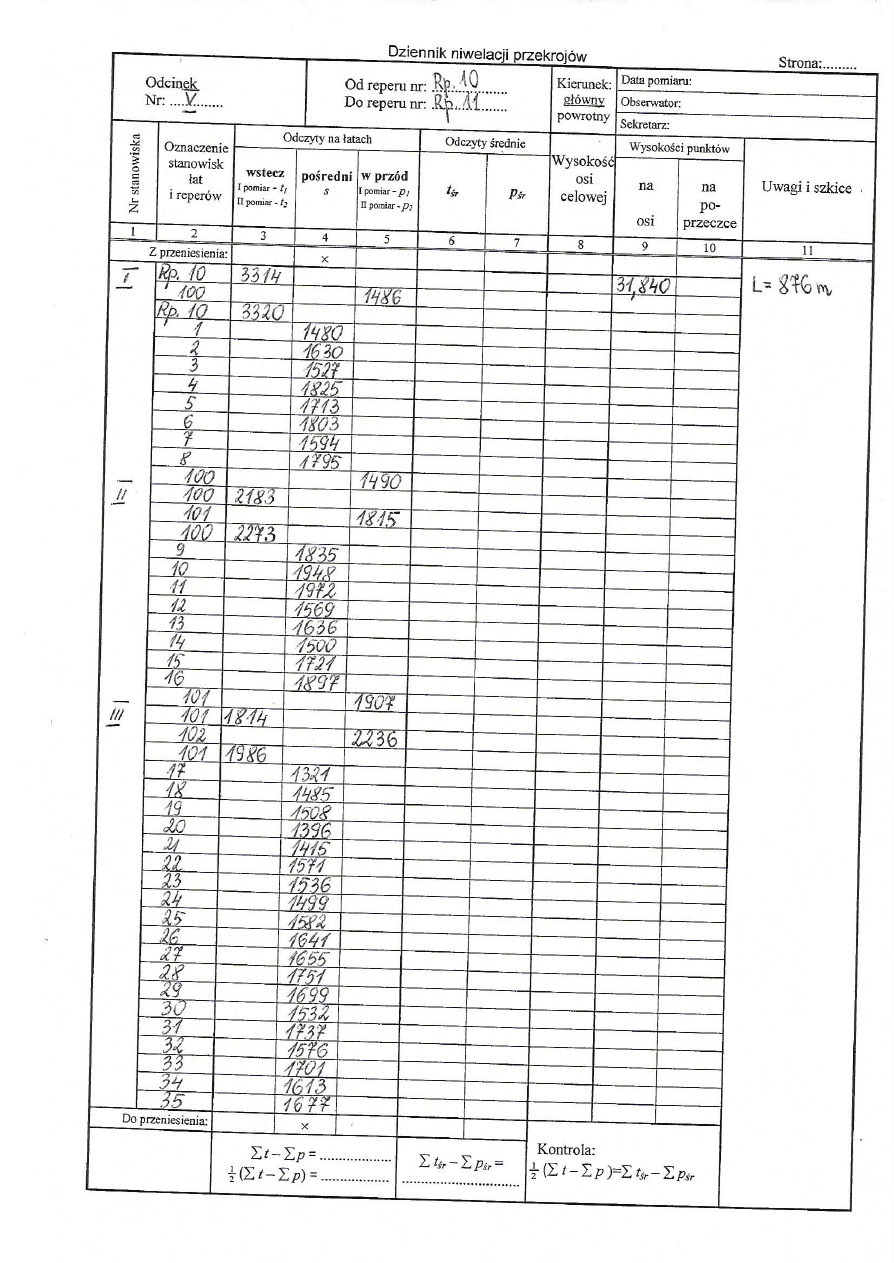 Dziennik niwelacji przekrojów
Strona:.........
Odcinek
Nr: ....V........
Od reperu nr: .Rp..10........
Do reperu nr: .Rp..11.......
Kierunek:
główny
powrotny
Data pomiaru:
Obserwator:
Sekretarz:
Nr stanowiska
Oznaczenie
stanowisk
łat
i reperów
Odczyty na łatach
wstecz
I pomiar - t₁
II pomiar - t₂
pośredni
s
w przód
I pomiar - p₁
II pomiar - p₂
Odczyty średnie
tśr
pśr
Wysokość
osi
celowej
Wysokości punktów
na
osi
na
po-
przeczce
Uwagi i szkice
1 2 3 4 5 6 7 8 9 10 11
Z przeniesienia: x
I Rp. 10 3314 31,840 L= 876 m
100 1486
Rp. 10 3320
1 1480
2 1630
3 1527
4 1825
5 1713
6 1803
7 1594
8 1795
100 1490
II 100 2183
101 1815
100 2273
9 1835
10 1948
11 1972
12 1569
13 1636
14 1500
15 1721
16 1897
101 1907
III 101 1814
102 2236
101 1986
17 1321
18 1485
19 1508
20 1396
21 1415
22 1571
23 1536
24 1499
25 1582
26 1641
27 1655
28 1751
29 1699
30 1532
31 1737
32 1576
33 1701
34 1613
35 1677
Do przeniesienia: x
∑t – ∑p = ..................
½(∑t – ∑p) = .................
∑tśr – ∑pśr =
.............................
Kontrola:
½(∑t – ∑p)=∑tśr – ∑pśr